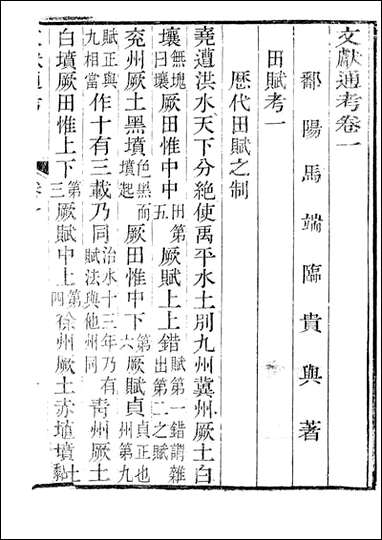 文獻通考卷一
鄱陽馬端臨貴與著
田賦考一
歷代田賦之制
堯遭洪水天下分絶使禹平水土別九州冀州厥土白
壤無塊曰壤厥田惟中中田第五厥賦上上錯賦第一錯謂雜出第二之賦
兖州厥土黑墳色黑而墳起厥田惟中下第六厥賦貞貞正也州第九
賦正與九相當作十有三載乃同治水十三年乃有賦法與他州同青州厥土
白墳厥田惟上下第三厥賦中上第四徐州厥土赤埴墳土黏